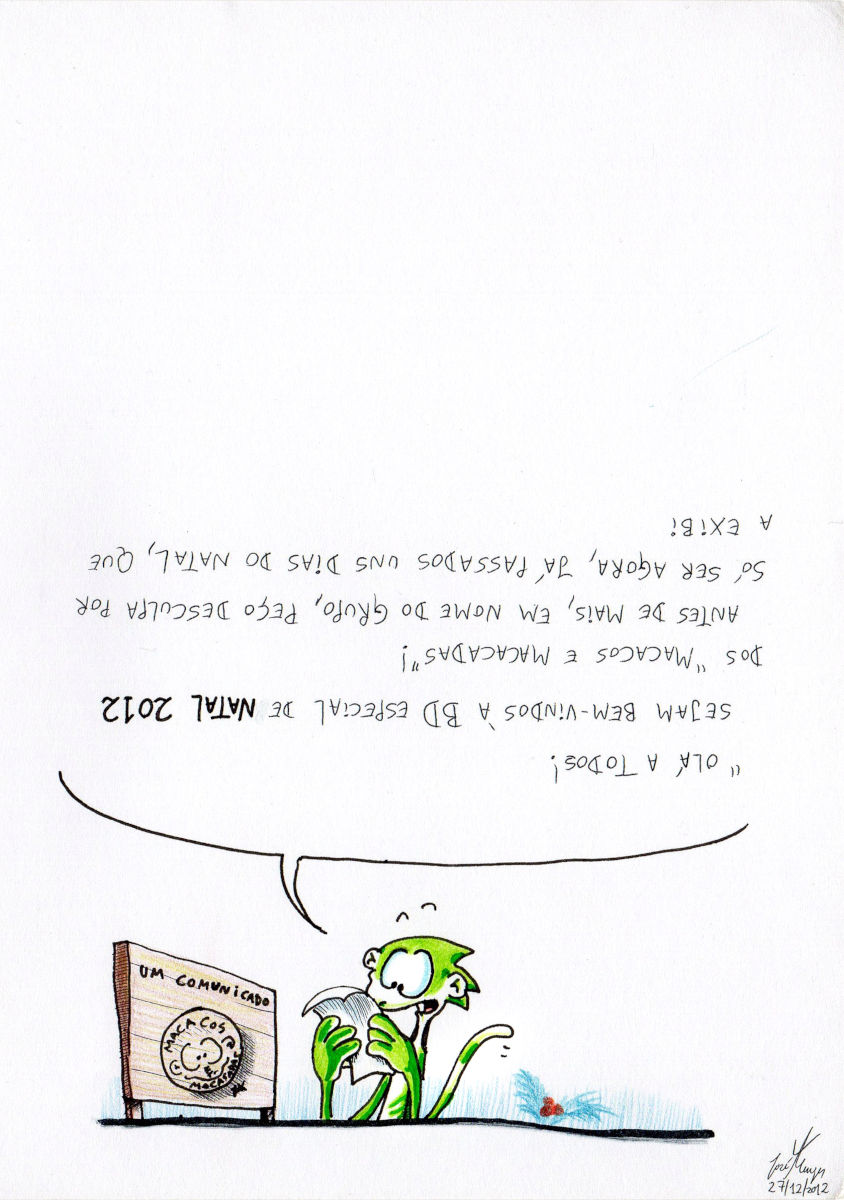 "OLÁ A TODOS!
SEJAM BEM-VINDOS À BD ESPECIAL DE NATAL 2012
DOS "MACACOS E MACACADAS"!
ANTES DE MAIS, EM NOME DO GRUPO, PEÇO DESCULPA POR
SÓ SER AGORA, JÁ PASSADOS UNS DIAS DO NATAL, QUE
A EXIBI
UM COMUNICADO
MACACOS
MACACADAS
27/12/2012